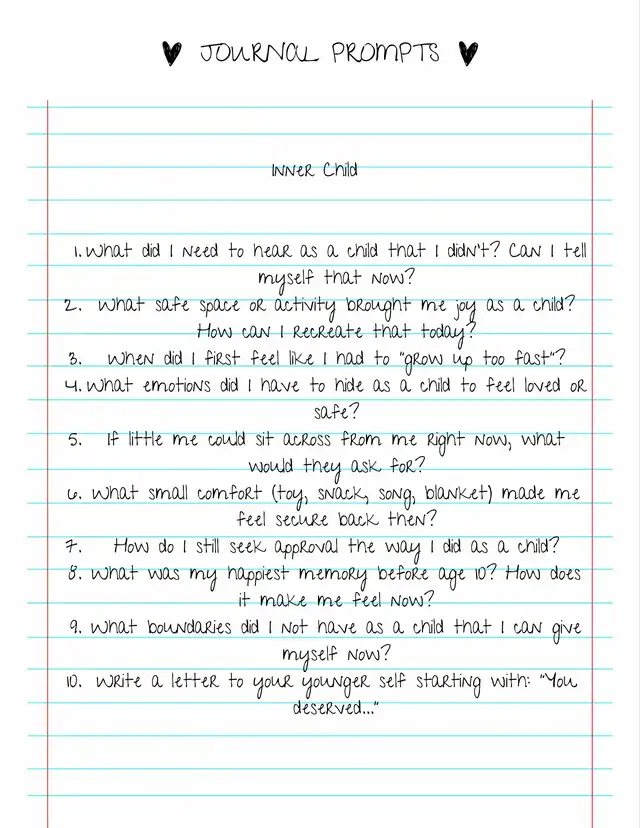 ♥ JOURNAL PROMPTS ♥
INNER Child
1. What did I need to hear as a child that I didn't? Can I tell
myself that now?
2. What safe space or activity brought me joy as a child?
How can I recreate that today?
3. When did I first feel like I had to "grow up too fast"?
4. What emotions did I have to hide as a child to feel loved or
safe?
5. If little me could sit across from me right now, what
would they ask for?
6. What small comfort (toy, snack, song, blanket) made me
feel secure back then?
7. How do I still seek approval the way I did as a child?
8. What was my happiest memory before age 10? How does
it make me feel now?
9. What boundaries did I not have as a child that I can give
myself now?
10. Write a letter to your younger self starting with: "You
deserved..."